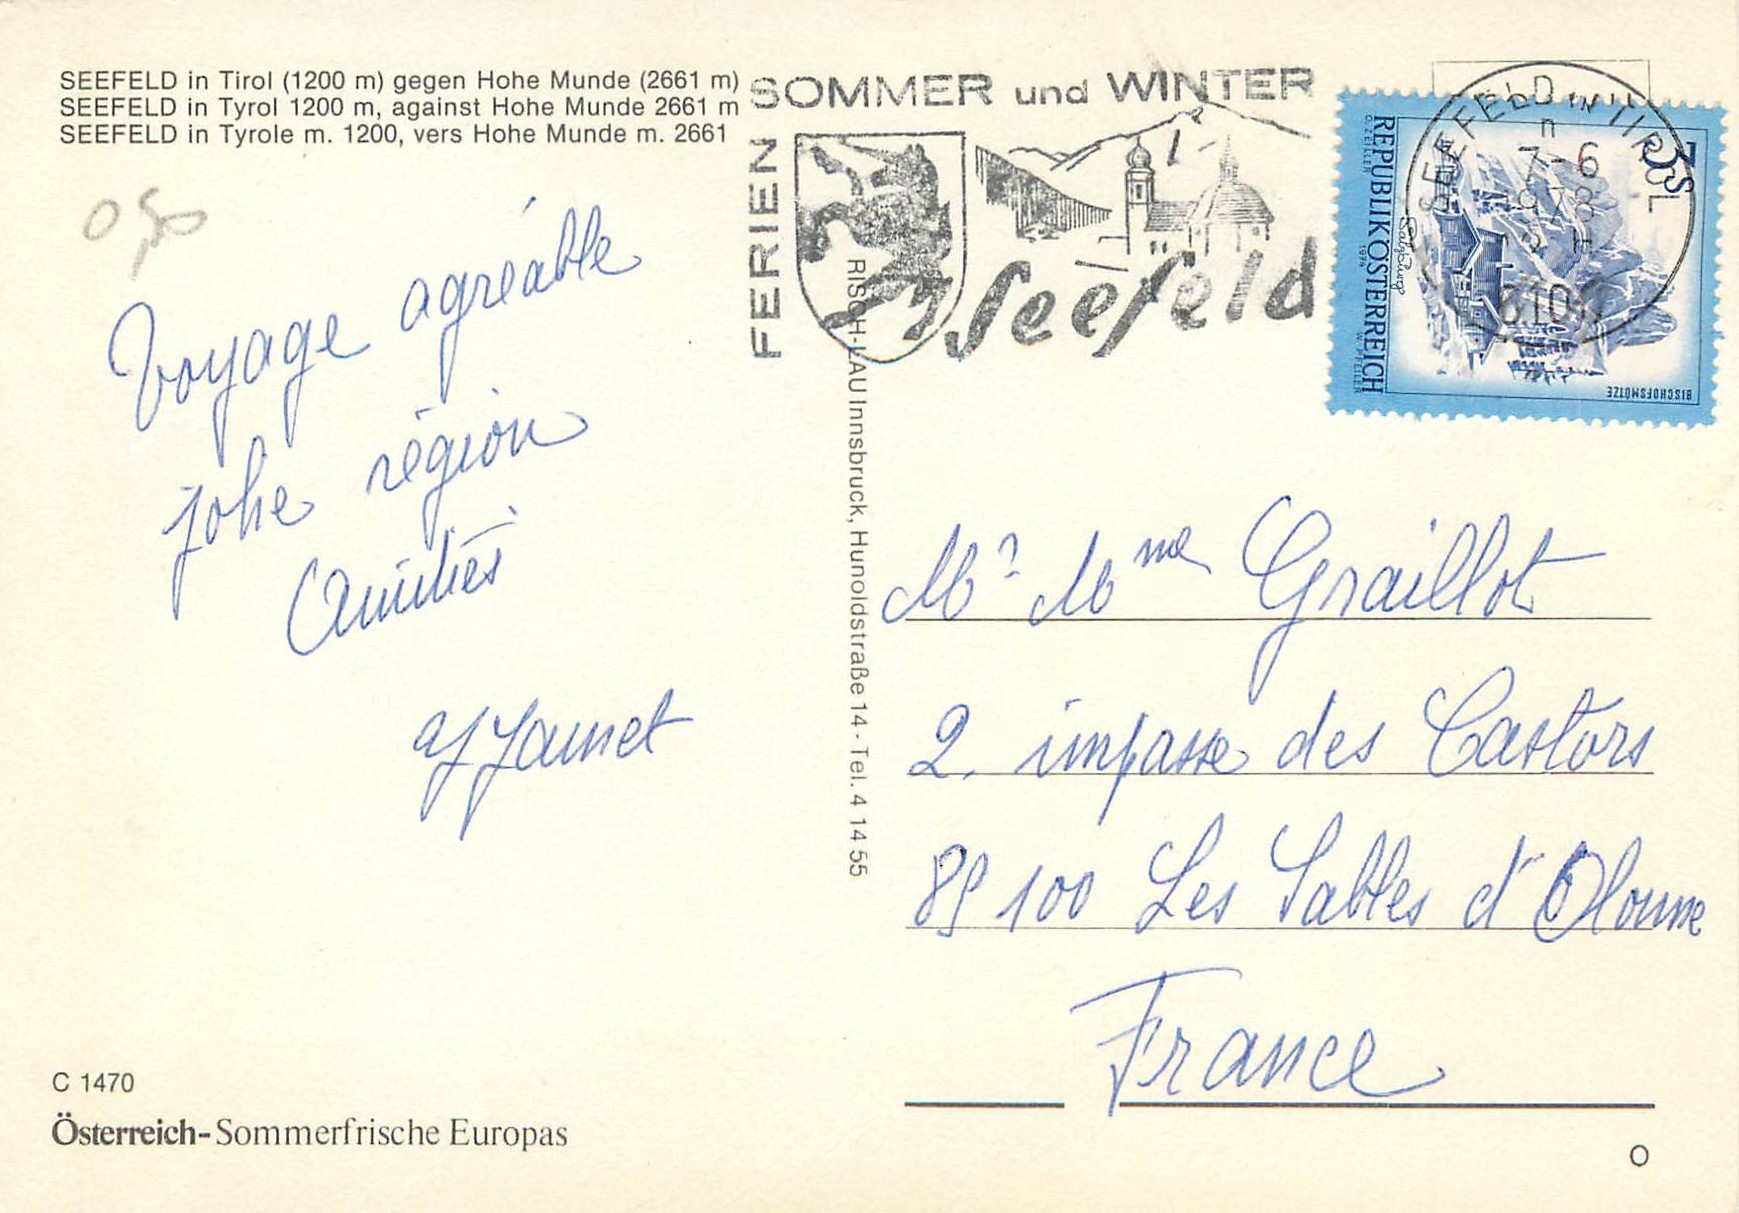 SEEFELD in Tirol (1200 m) gegen Hohe Munde (2661 m)
SEEFELD in Tyrol 1200 m, against Hohe Munde 2661 m
SEEFELD in Tyrole m. 1200, vers Hohe Munde m. 2661
0,50
Voyage agréable
jolie région
Amitiés
Jamet
C 1470
Österreich-Sommerfrische Europas
RISCH-LAU Innsbruck, Hunoldstraße 14 - Tel. 4 14 55
FERIEN
SOMMER und WINTER
Seefeld
SEEFELD IN TIROL
7-6
6100
REPUBLIK ÖSTERREICH
3S
Salzburg
O. ZEILLER
1974
W. PFEILER
BISCHOFSMÜTZE
Mr Mme Graillot
2. impasse des Castors
85 100 Les Sables d'Olonne
France
O